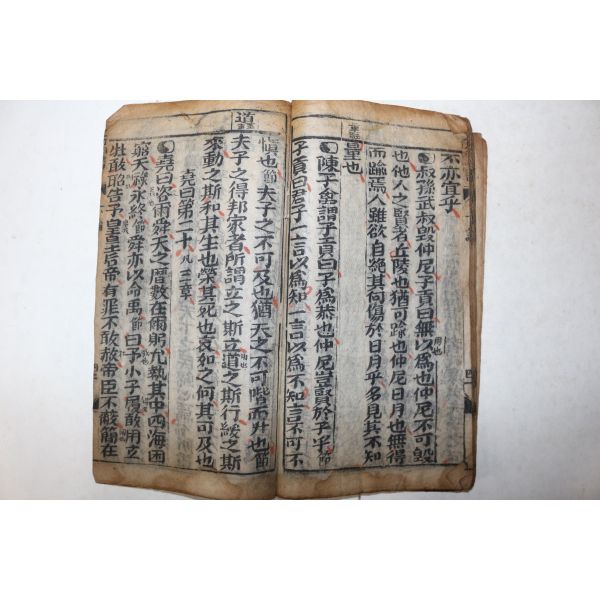 不亦宜乎
叔孫武叔毁仲尼子貢曰無以爲也仲尼不可毁
也他人之賢者丘陵也猶可踰也仲尼日月也無得
而踰焉人雖欲自絶其何傷於日月乎多見其不知
量也
陳子禽謂子貢曰子爲恭也仲尼豈賢於子乎節
子貢曰君子一言以爲知一言以爲不知言不可不
愼也節夫子之不可及也猶天之不可階而升也節
道
夫子之得邦家者所謂立之斯立道之斯行綏之斯
來動之斯和其生也榮其死也哀如之何其可及也
堯曰第二十凡三章
堯曰咨爾舜天之曆數在爾躬允執其中四海困
窮天祿永終節舜亦以命禹節曰予小子履敢用玄
牡敢昭告于皇皇后帝有罪不敢赦帝臣不蔽簡在